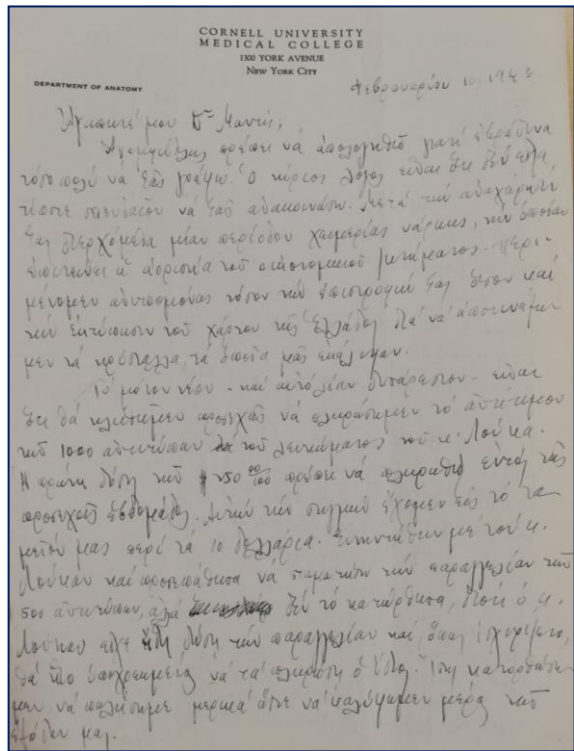 CORNELL UNIVERSITY
MEDICAL COLLEGE
1300 YORK AVENUE
NEW YORK CITY
DEPARTMENT OF ANATOMY
Φεβρουαρίου 10, 194
Ἀγαπητέ μου
πρέπει νὰ ἀπολογηθῶ γιατὶ ἐβράδυνα
τόσο πολὺ νὰ σᾶς γράψω. Ὁ κύριος λόγος εἶναι ὅτι δὲν εἶχα
τίποτε σπουδαῖον νὰ σᾶς ἀνακοινώσω. Μετὰ τὴν ἀναχώρησή
σας διερχόμεθα μίαν περίοδον χειμερίας νάρκης, τὴν ὁποίαν
ἐπιτείνει ἡ ἀοριστία τοῦ οἰκονομικοῦ ζητήματος. Περι-
μένομεν ἀνυπομόνως τόσον τὴν ἐπιστροφήν σας ὅσον καὶ
τὴν ἐκτύπωσιν τοῦ χάρτου τῆς Ἑλλάδος διὰ νὰ
μεν τὰ τὰ ὁποῖα μᾶς
Τὸ μόνον νέον - καὶ αὐτὸ λίαν δυσάρεστον - εἶναι
ὅτι θὰ προσεχῶς νὰ πληρώσωμεν τὸ ἀντίτιμον
τῶν 1000 ἀντιτύπων τοῦ λευκώματος τοῦ κ. Λούκα.
Ἡ πρώτη δόση τῶν πρέπει νὰ πληρωθῇ ἐντὸς τῆς
προσεχοῦς ἑβδομάδος. Αὐτὴν τὴν στιγμὴν ἔχομεν εἰς τὸ τα-
μεῖον μας περὶ τὰ 10 δολλάρια. μὲ τὸν κ.
Λούκαν καὶ προσεπάθησα νὰ σταματήσω τὴν παραγγελίαν τῶν
500 ἀντιτύπων, ἀλλὰ δὲν τὸ κατώρθωσα, διότι ὁ κ.
Λούκας εἶχε ἤδη δώσῃ τὴν παραγγελίαν καὶ, ὅπως ἰσχυρίζετο,
θὰ ἦτο ὑποχρεωμένος νὰ τὰ πληρώσῃ ὁ ἴδιος. Ἴσως κατορθώσω-
μεν νὰ πωλήσωμε μερικὰ ὥστε νὰ καλύψωμεν μέρος τῶν
ἐξόδων μας.